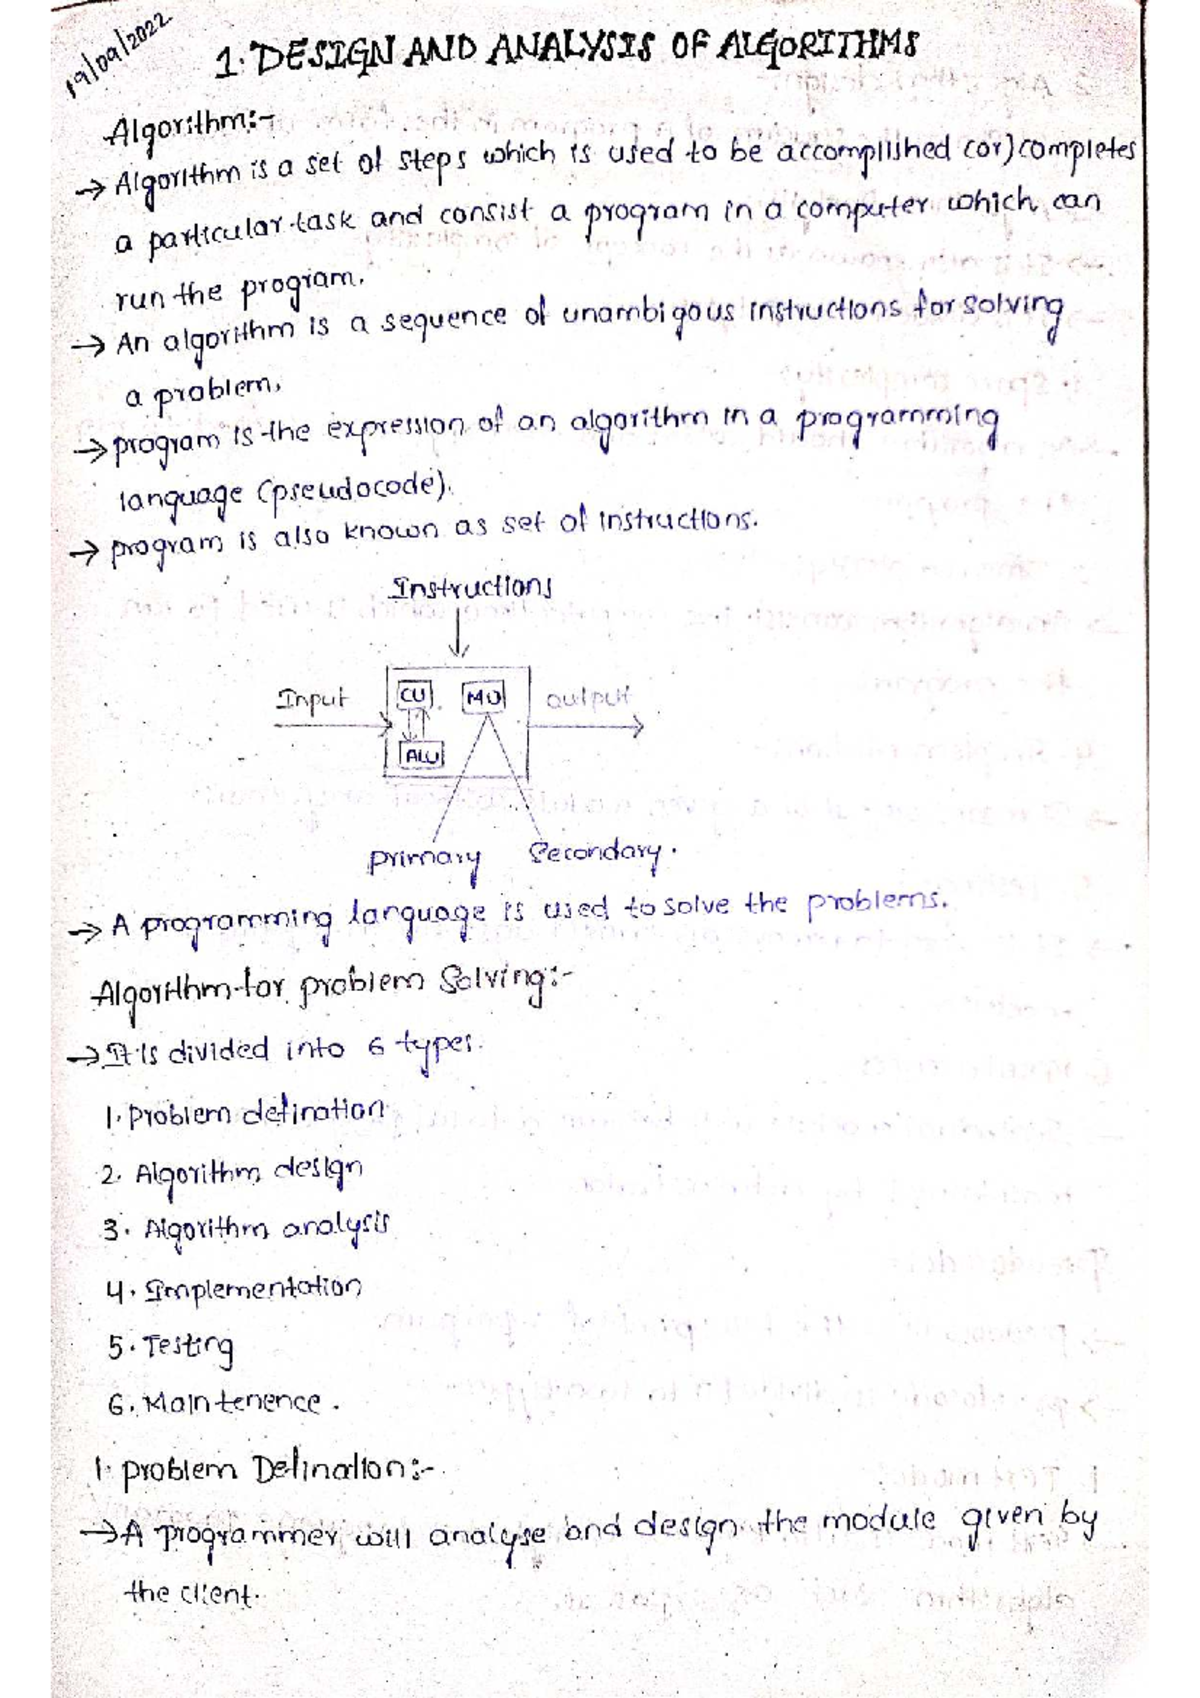 19/09/2022
1. DESIGN AND ANALYSIS OF ALGORITHMS
Algorithm:-
→ Algorithm is a set of steps which is used to be accomplished (or) completes
a particular task and consist a program in a computer which can
run the program.
→ An algorithm is a sequence of unambigous instructions for solving
a problem.
→ program is the expression of an algorithm in a programming
language (pseudocode).
→ program is also known as set of instructions.
Instructions
Input CU MU output
ALU
primary Secondary.
→ A programming language is used to solve the problems.
Algorithm for problem Solving:-
→ It is divided into 6 types.
1. Problem defination
2. Algorithm design
3. Algorithm analysis
4. Implementation
5. Testing
6. Maintenence.
1. problem Defination:-
→ A programmer will analyse and design the module given by
the client.